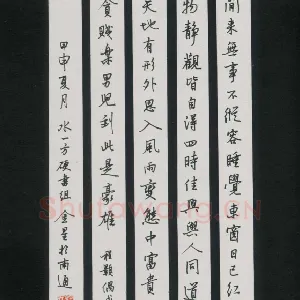 闲来無事不從容睡覺東窗日已红
物静觀皆自得四時佳興與人同道
天地有形外思入風雨變態中富貴
貧賤樂男兒到此是豪雄 程顥偶成
甲申夏月 水一方硬書組 金星於南通
Shufawang.CN